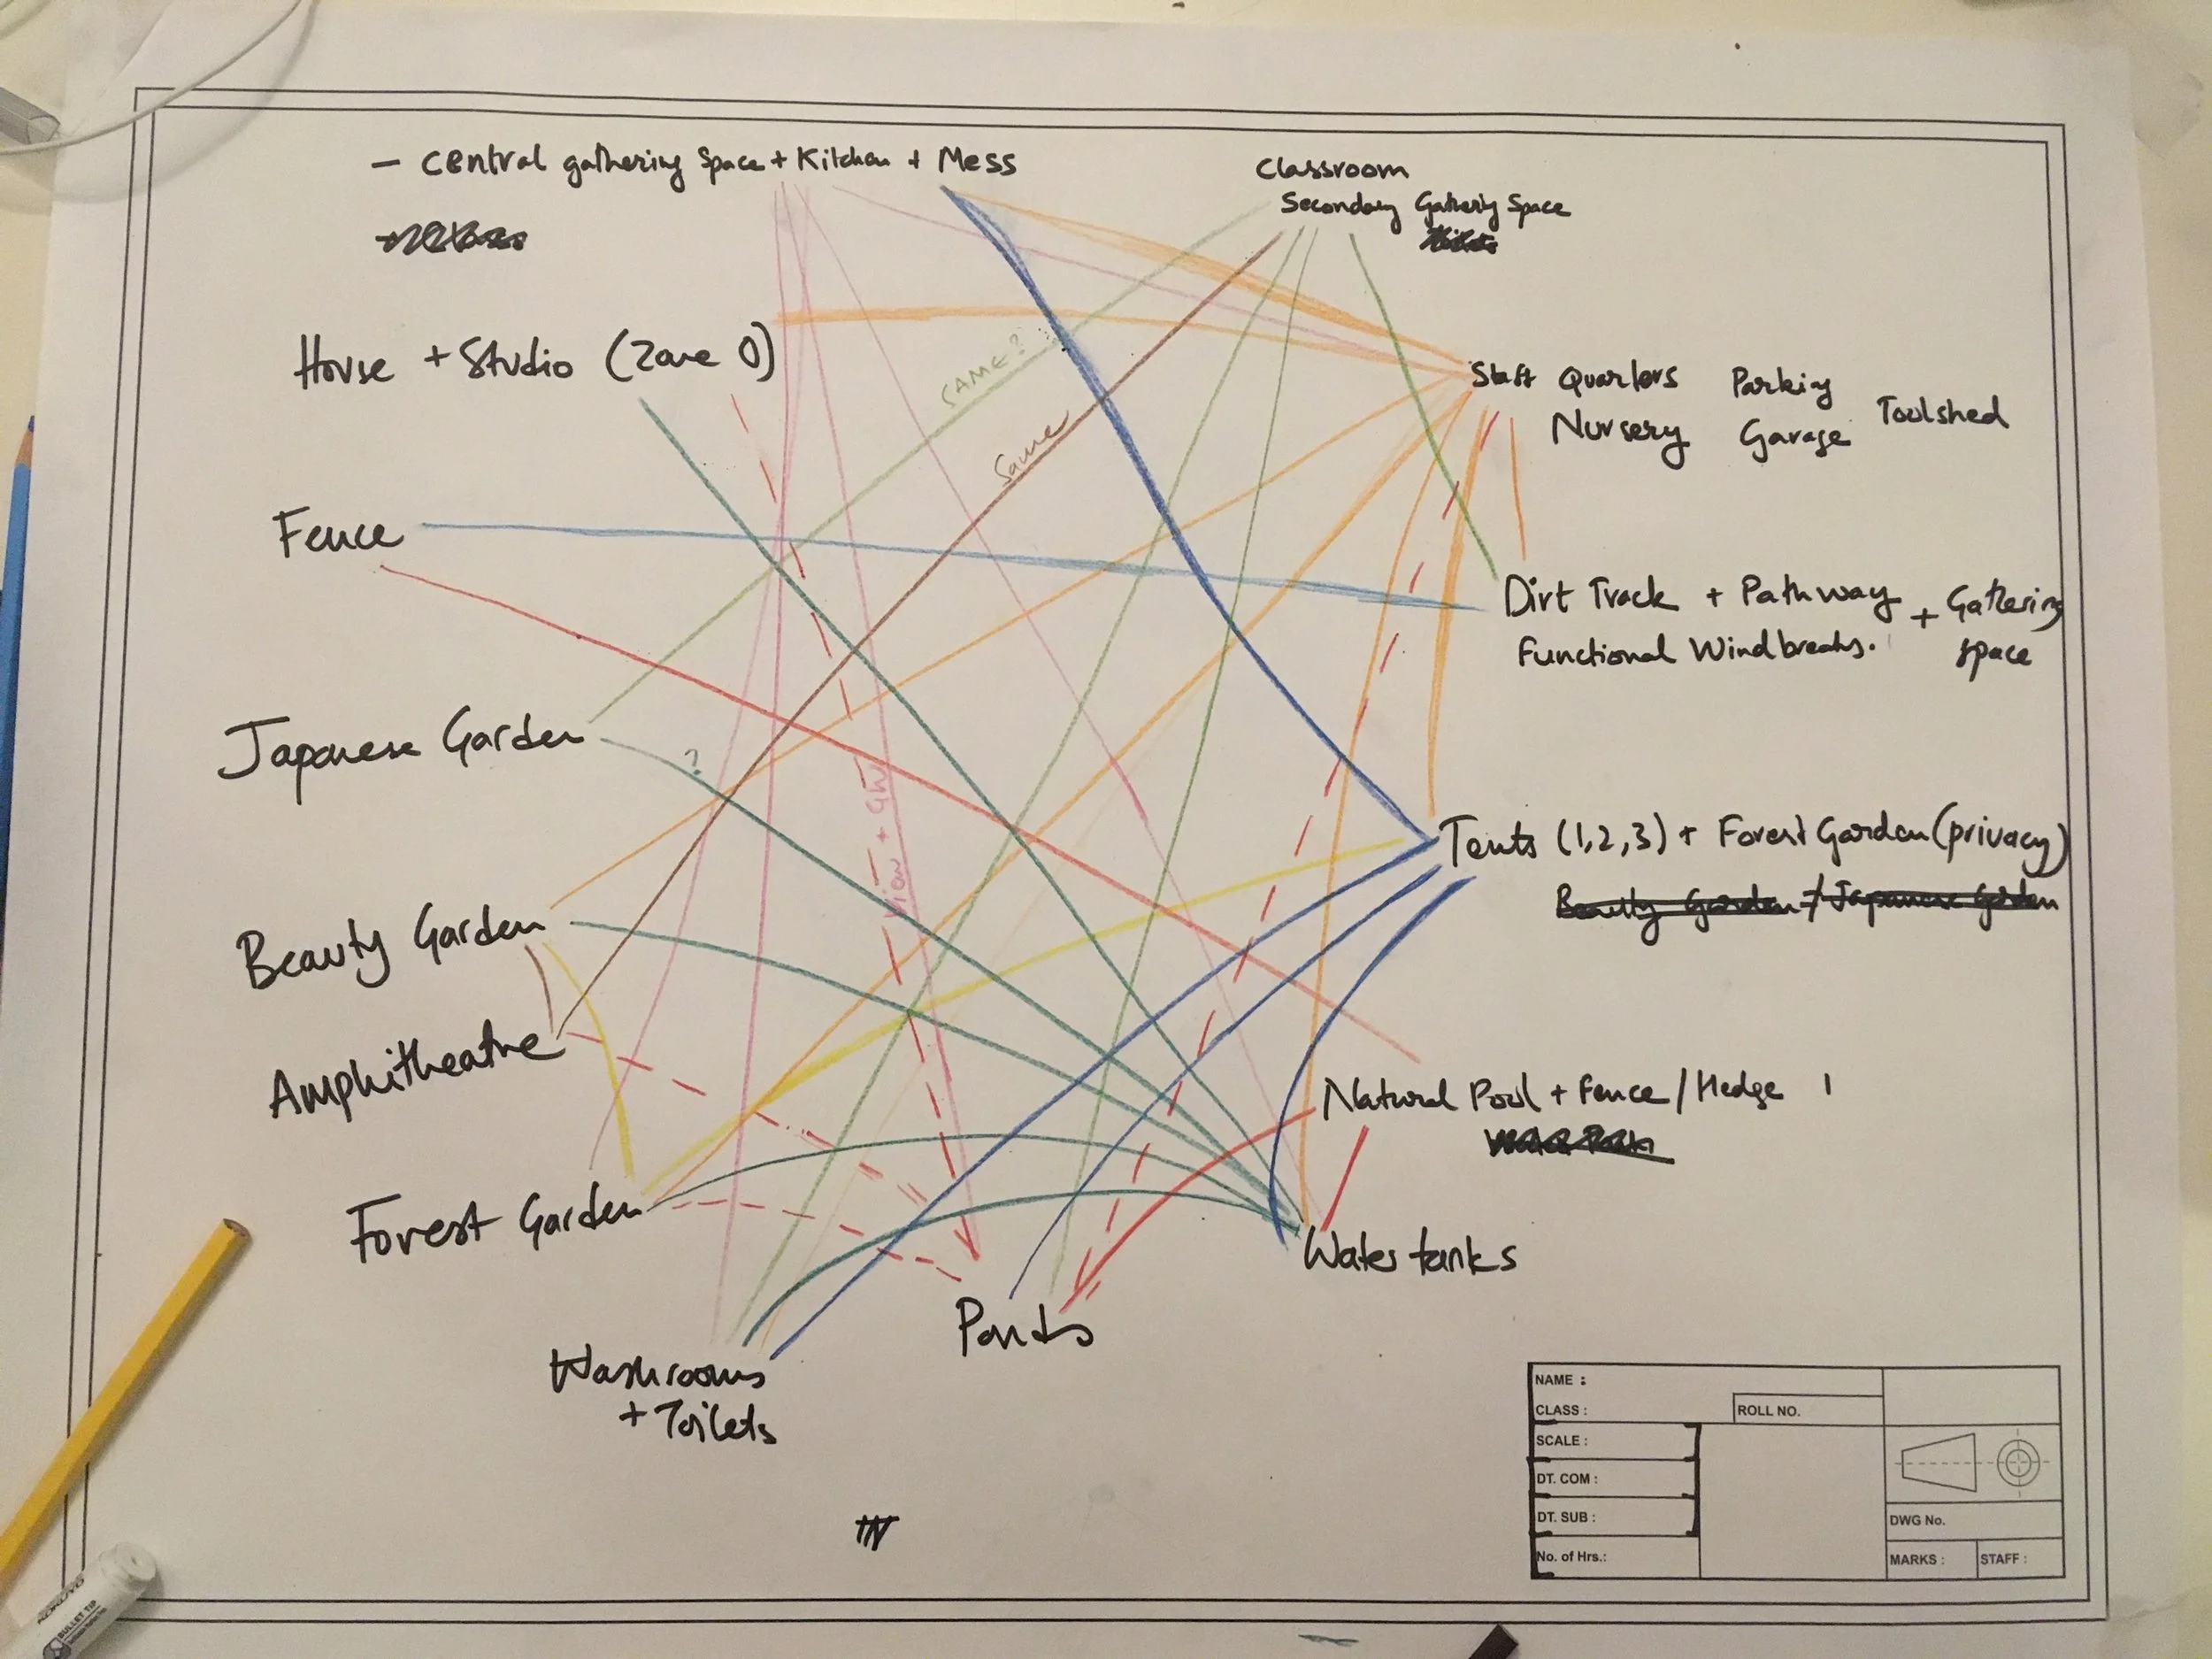 - Central gathering Space + Kitchen + Mess
Classroom
Secondary Gathering Space
House + Studio (Zone 0)
SAME?
Same
Staff Quarters Parking Toolshed
Nursery Garage
Fence
Dirt Track + Pathway + Gathering
Functional Windbreaks. space
Japanese Garden
?
View + GW
Tents (1,2,3) + Forest Garden (privacy)
Beauty Garden / Japanese Garden
Beauty Garden
Amphitheatre
Natural Pool + Fence / Hedge
Forest Garden
Water tanks
Ponds
Washrooms
+ Toilets
NAME :
CLASS :
ROLL NO.
SCALE :
DT. COM :
DT. SUB :
DWG No.
No. of Hrs.:
MARKS :
STAFF :
KOKUYO
BULLET TIP